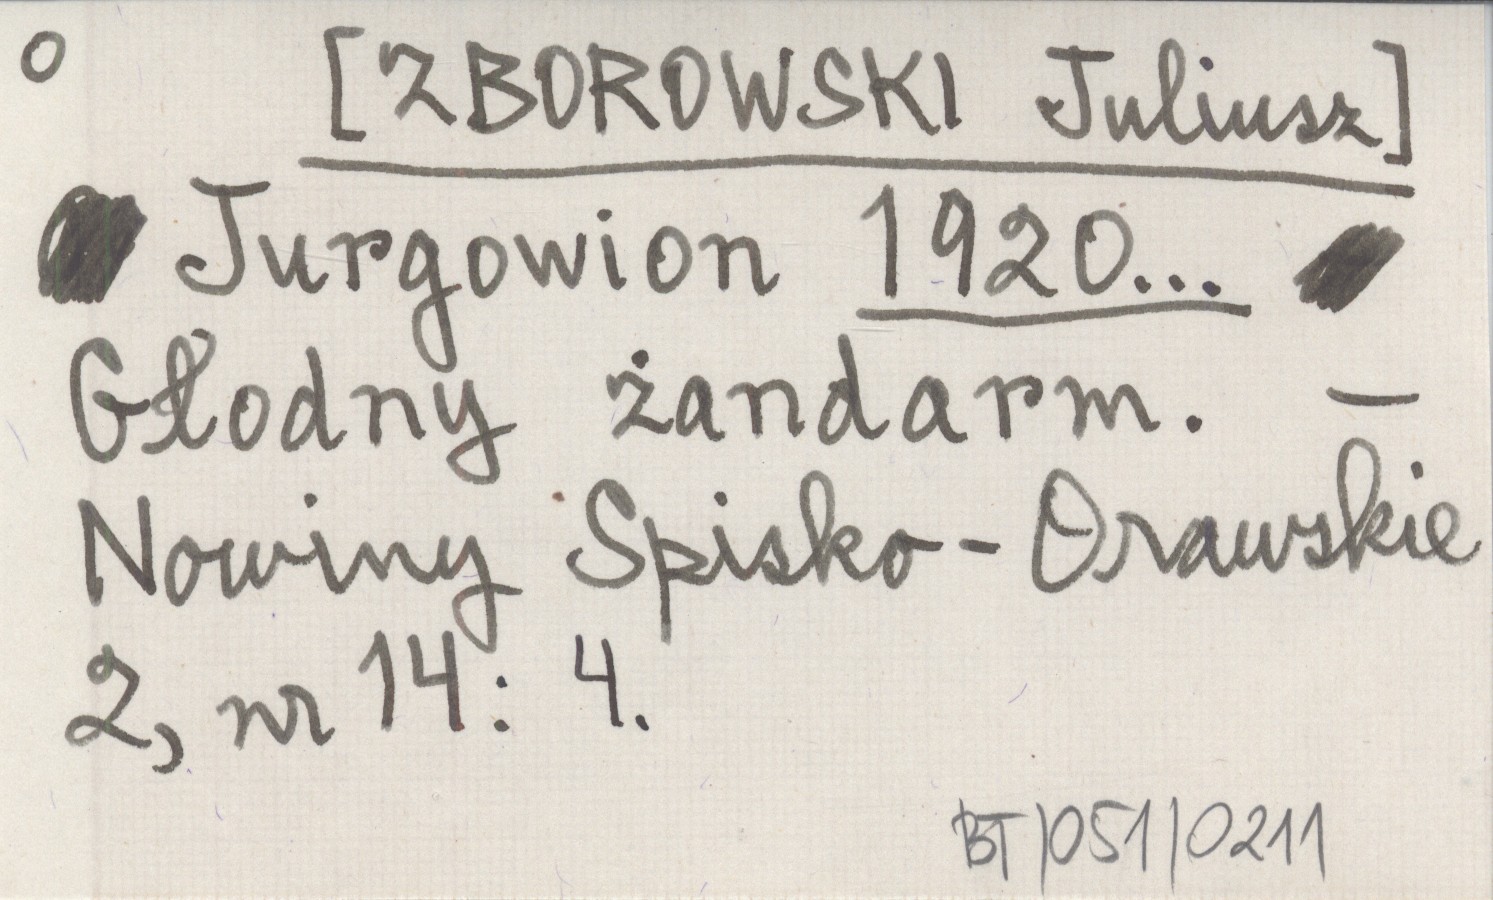 O
[ZBOROWSKI Juliusz]
Jurgowion 1920...
Głodny żandarm. –
Nowiny Spisko-Orawskie
2, nr 14: 4.
BT|051|0211